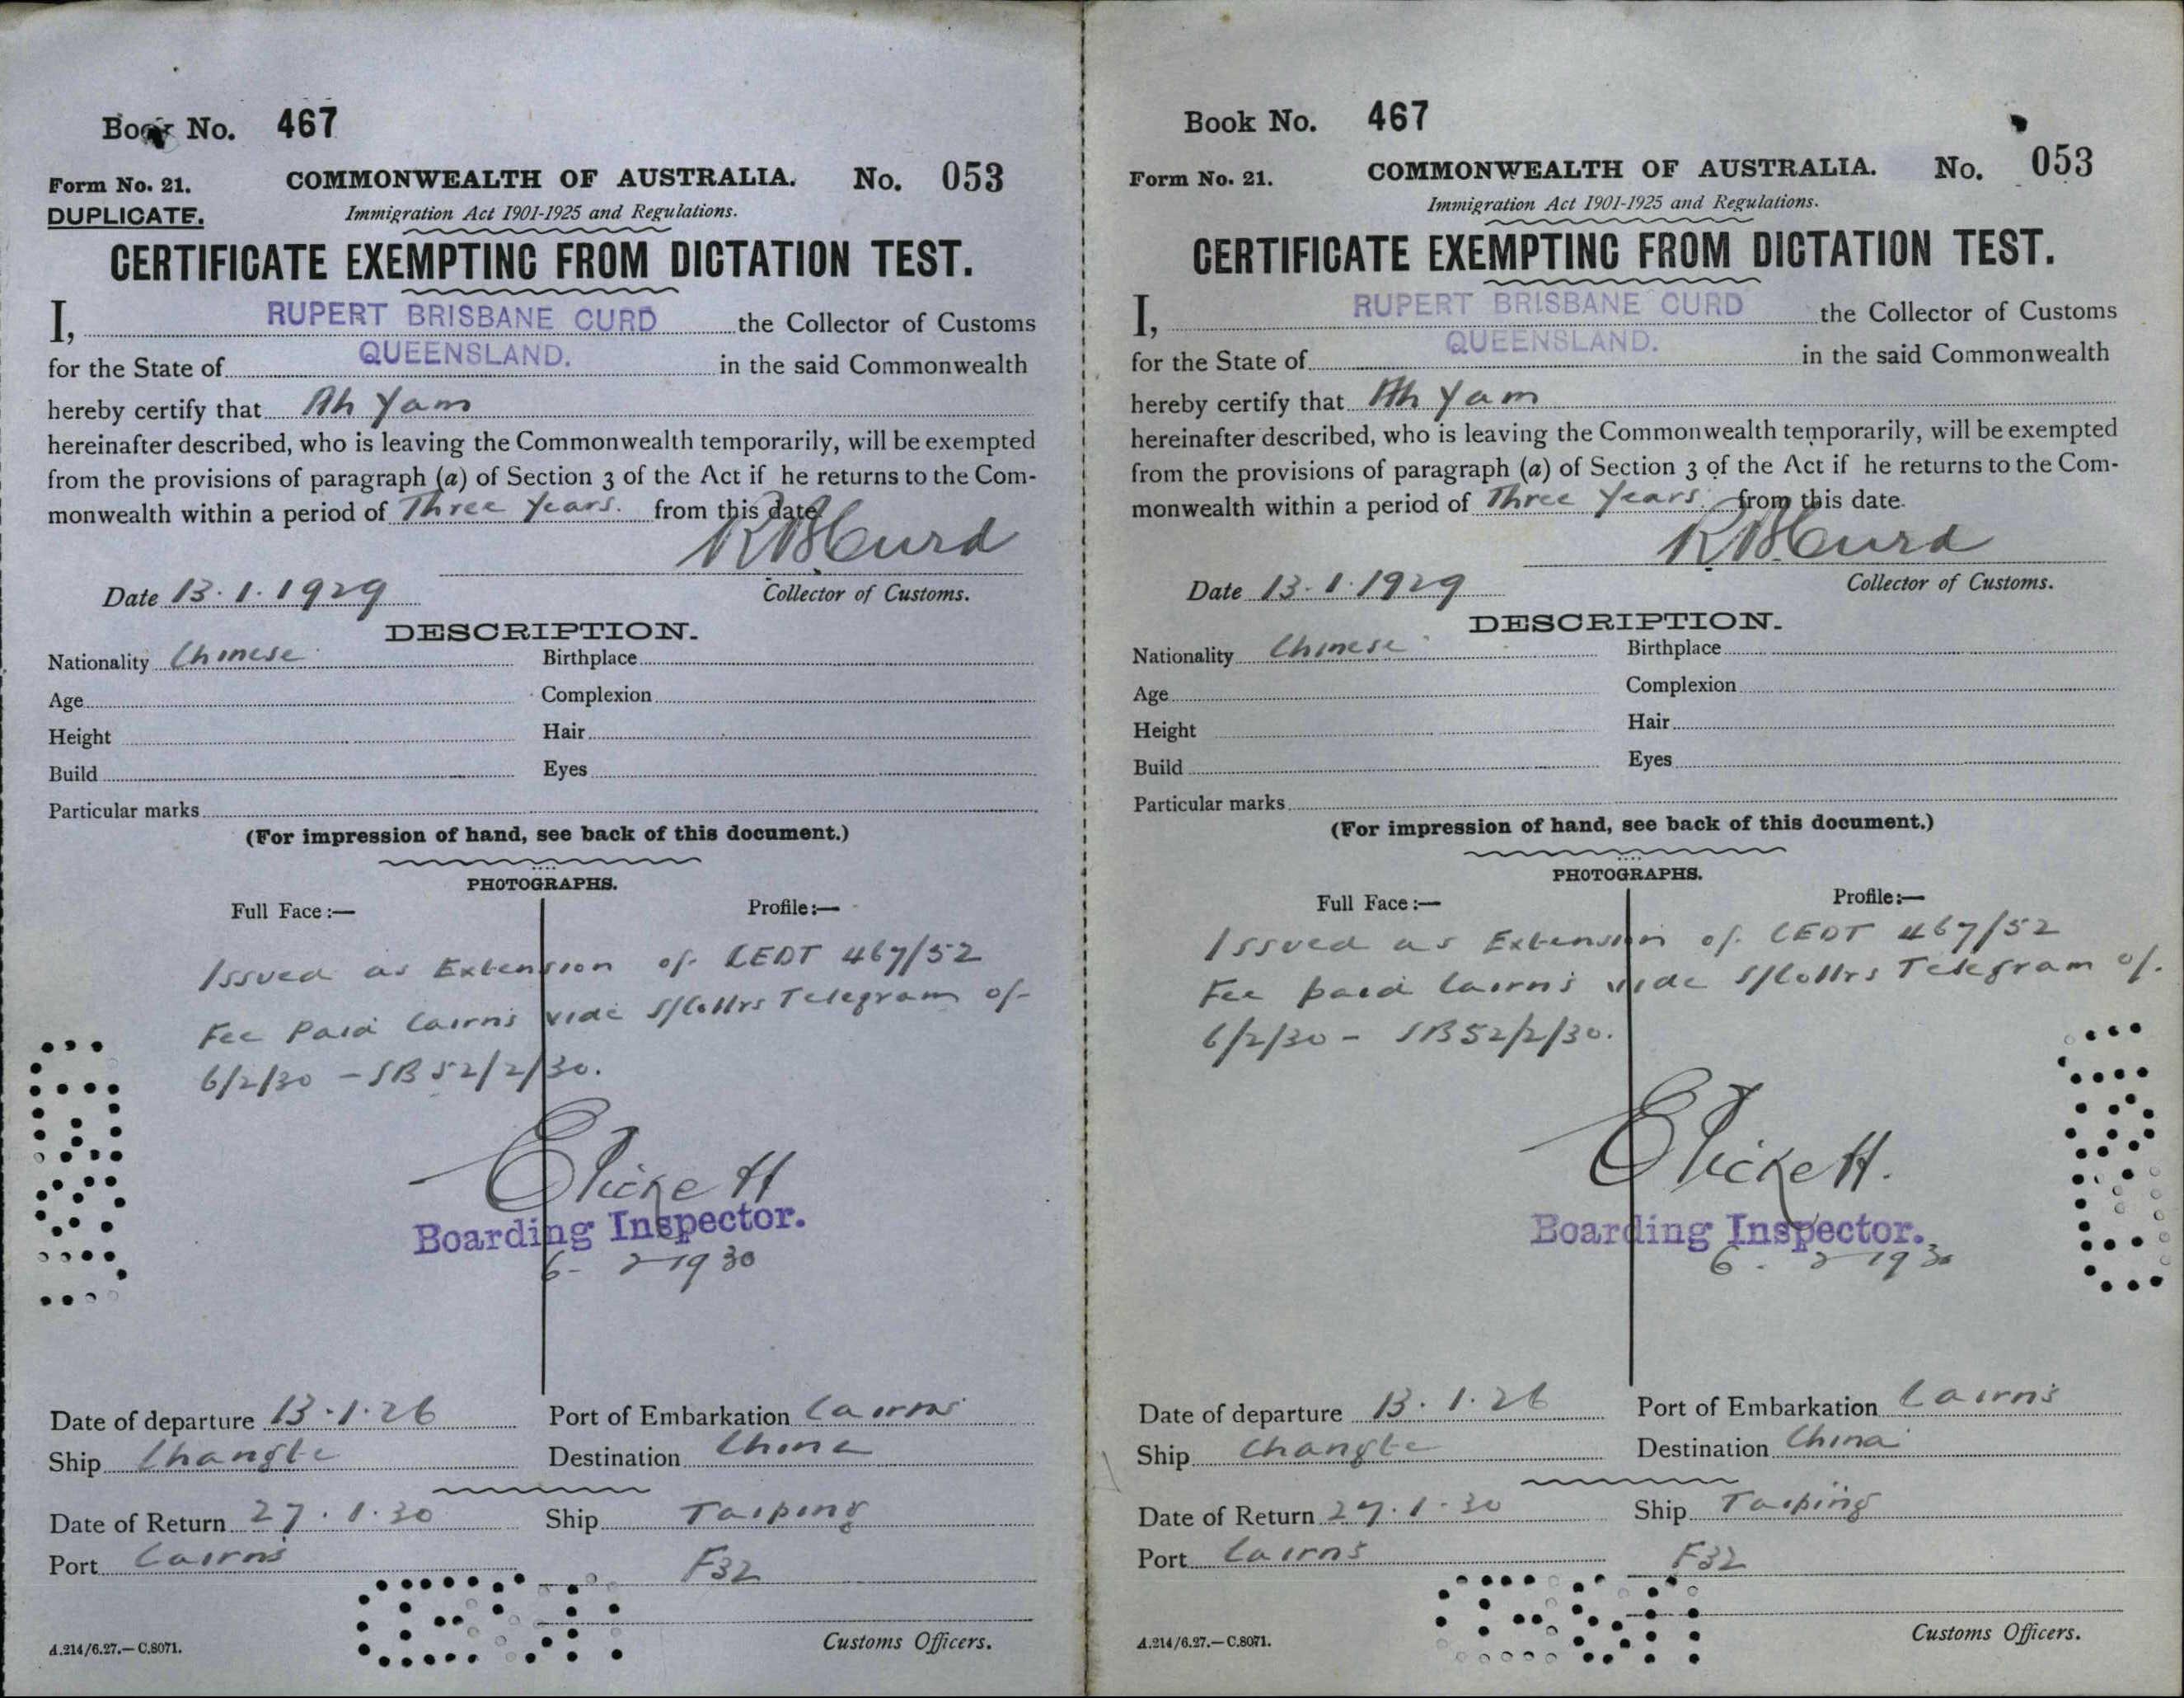 Book No. 467
Form No. 21. COMMONWEALTH OF AUSTRALIA. No. 053
DUPLICATE. Immigration Act 1901-1925 and Regulations.
CERTIFICATE EXEMPTING FROM DICTATION TEST.
I, RUPERT BRISBANE CURD the Collector of Customs
for the State of QUEENSLAND. in the said Commonwealth
hereby certify that Ah Yam
hereinafter described, who is leaving the Commonwealth temporarily, will be exempted
from the provisions of paragraph (a) of Section 3 of the Act if he returns to the Com-
monwealth within a period of Three Years. from this date.
RBCurd
Date 13.1.1929 Collector of Customs.
DESCRIPTION.
Nationality Chinese Birthplace
Age Complexion
Height Hair
Build Eyes
Particular marks
(For impression of hand, see back of this document.)
PHOTOGRAPHS.
Full Face:— Profile:—
Issued as Extension of CEDT 467/52
Fee Paid Cairns vide S/Collrs Telegram of
6/2/30 - SB 52/2/30.
Boarding Inspector.
6-2-1930
Date of departure 13.1.26 Port of Embarkation Cairns
Ship Changte Destination China
Date of Return 27.1.30 Ship Taiping
Port Cairns F32
A.214/6.27.—C.8071. Customs Officers.
Book No. 467
Form No. 21. COMMONWEALTH OF AUSTRALIA. No. 053
Immigration Act 1901-1925 and Regulations.
CERTIFICATE EXEMPTING FROM DICTATION TEST.
I, RUPERT BRISBANE CURD the Collector of Customs
for the State of QUEENSLAND. in the said Commonwealth
hereby certify that Ah Yam
hereinafter described, who is leaving the Commonwealth temporarily, will be exempted
from the provisions of paragraph (a) of Section 3 of the Act if he returns to the Com-
monwealth within a period of Three Years. from this date.
RBCurd
Date 13.1.1929 Collector of Customs.
DESCRIPTION.
Nationality Chinese Birthplace
Age Complexion
Height Hair
Build Eyes
Particular marks
(For impression of hand, see back of this document.)
PHOTOGRAPHS.
Full Face:— Profile:—
Issued as Extension of CEDT 467/52
Fee paid Cairns vide S/Collrs Telegram of
6/2/30 - SB52/2/30.
Boarding Inspector.
6.2-1930
Date of departure 13.1.26 Port of Embarkation Cairns
Ship Changte Destination China
Date of Return 27.1.30 Ship Taiping
Port Cairns F32
A.214/6.27.—C.8071. Customs Officers.